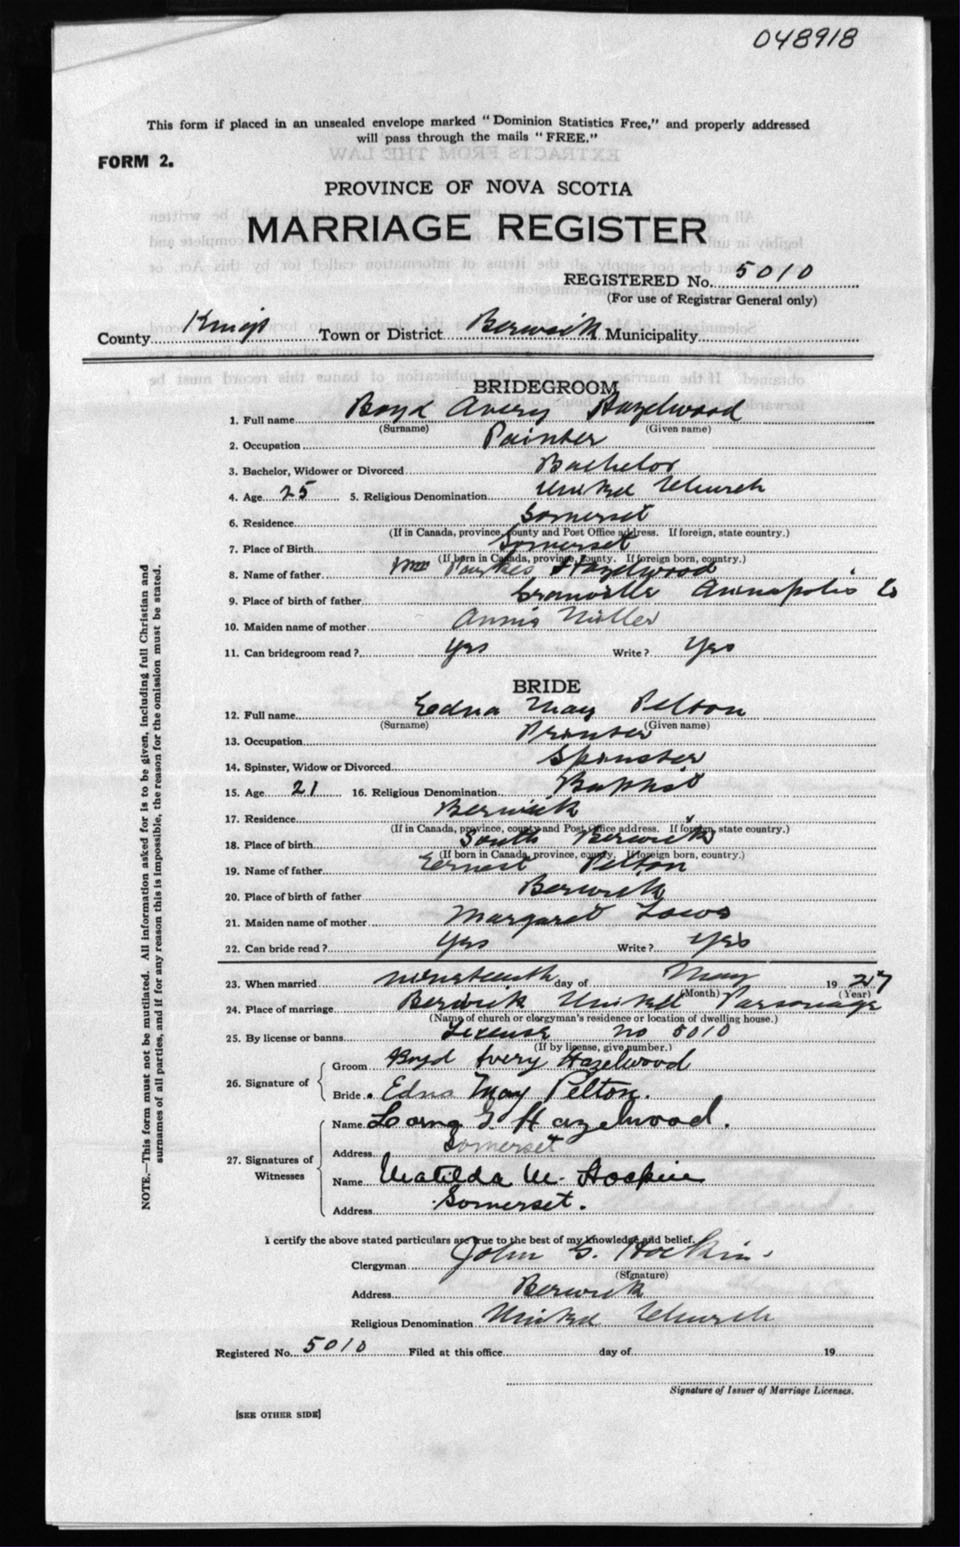 048918
This form if placed in an unsealed envelope marked "Dominion Statistics Free," and properly addressed
will pass through the mails "FREE."
FORM 2.
PROVINCE OF NOVA SCOTIA
MARRIAGE REGISTER
REGISTERED No. 5010
(For use of Registrar General only)
County Kings Town or District Berwick Municipality
BRIDEGROOM
1. Full name Boyd Avery Hazelwood
(Surname) (Given name)
2. Occupation Painter
3. Bachelor, Widower or Divorced Bachelor
4. Age 25 5. Religious Denomination United Church
6. Residence Somerset
(If in Canada, province, county and Post Office address. If foreign, state country.)
7. Place of Birth Somerset
(If born in Canada, province, county. If foreign born, country.)
8. Name of father Hazelwood
9. Place of birth of father Granville Annapolis Co
10. Maiden name of mother Annie Miller
11. Can bridegroom read? Yes Write? Yes
BRIDE
12. Full name Edna May Pelton
(Surname) (Given name)
13. Occupation Printer
14. Spinster, Widow or Divorced Spinster
15. Age 21 16. Religious Denomination Baptist
17. Residence Berwick
(If in Canada, province, county and Post Office address. If foreign, state country.)
18. Place of birth South Berwick
(If born in Canada, province, county. If foreign born, country.)
19. Name of father Ernest Pelton
20. Place of birth of father Berwick
21. Maiden name of mother Margaret
22. Can bride read? Yes Write? Yes
23. When married nineteenth day of May 1927
(Month) (Year)
24. Place of marriage Berwick United Parsonage
(Name of church or clergyman's residence or location of dwelling house.)
25. By license or banns License no 5010
(If by license, give number.)
26. Signature of
Groom Boyd Avery Hazelwood
Bride Edna May Pelton.
27. Signatures of Witnesses
Name Hazelwood.
Address Somerset
Name Matilda M. Hoskin
Address Somerset.
I certify the above stated particulars are true to the best of my knowledge and belief.
Clergyman John G. Hockin
(Signature)
Address Berwick
Religious Denomination United Church
Registered No. 5010 Filed at this office day of 19
Signature of Issuer of Marriage Licenses.
[SEE OTHER SIDE]
NOTE.—This form must not be mutilated. All information asked for is to be given, including full Christian and
surnames of all parties, and if for any reason this is impossible, the reason for the omission must be stated.